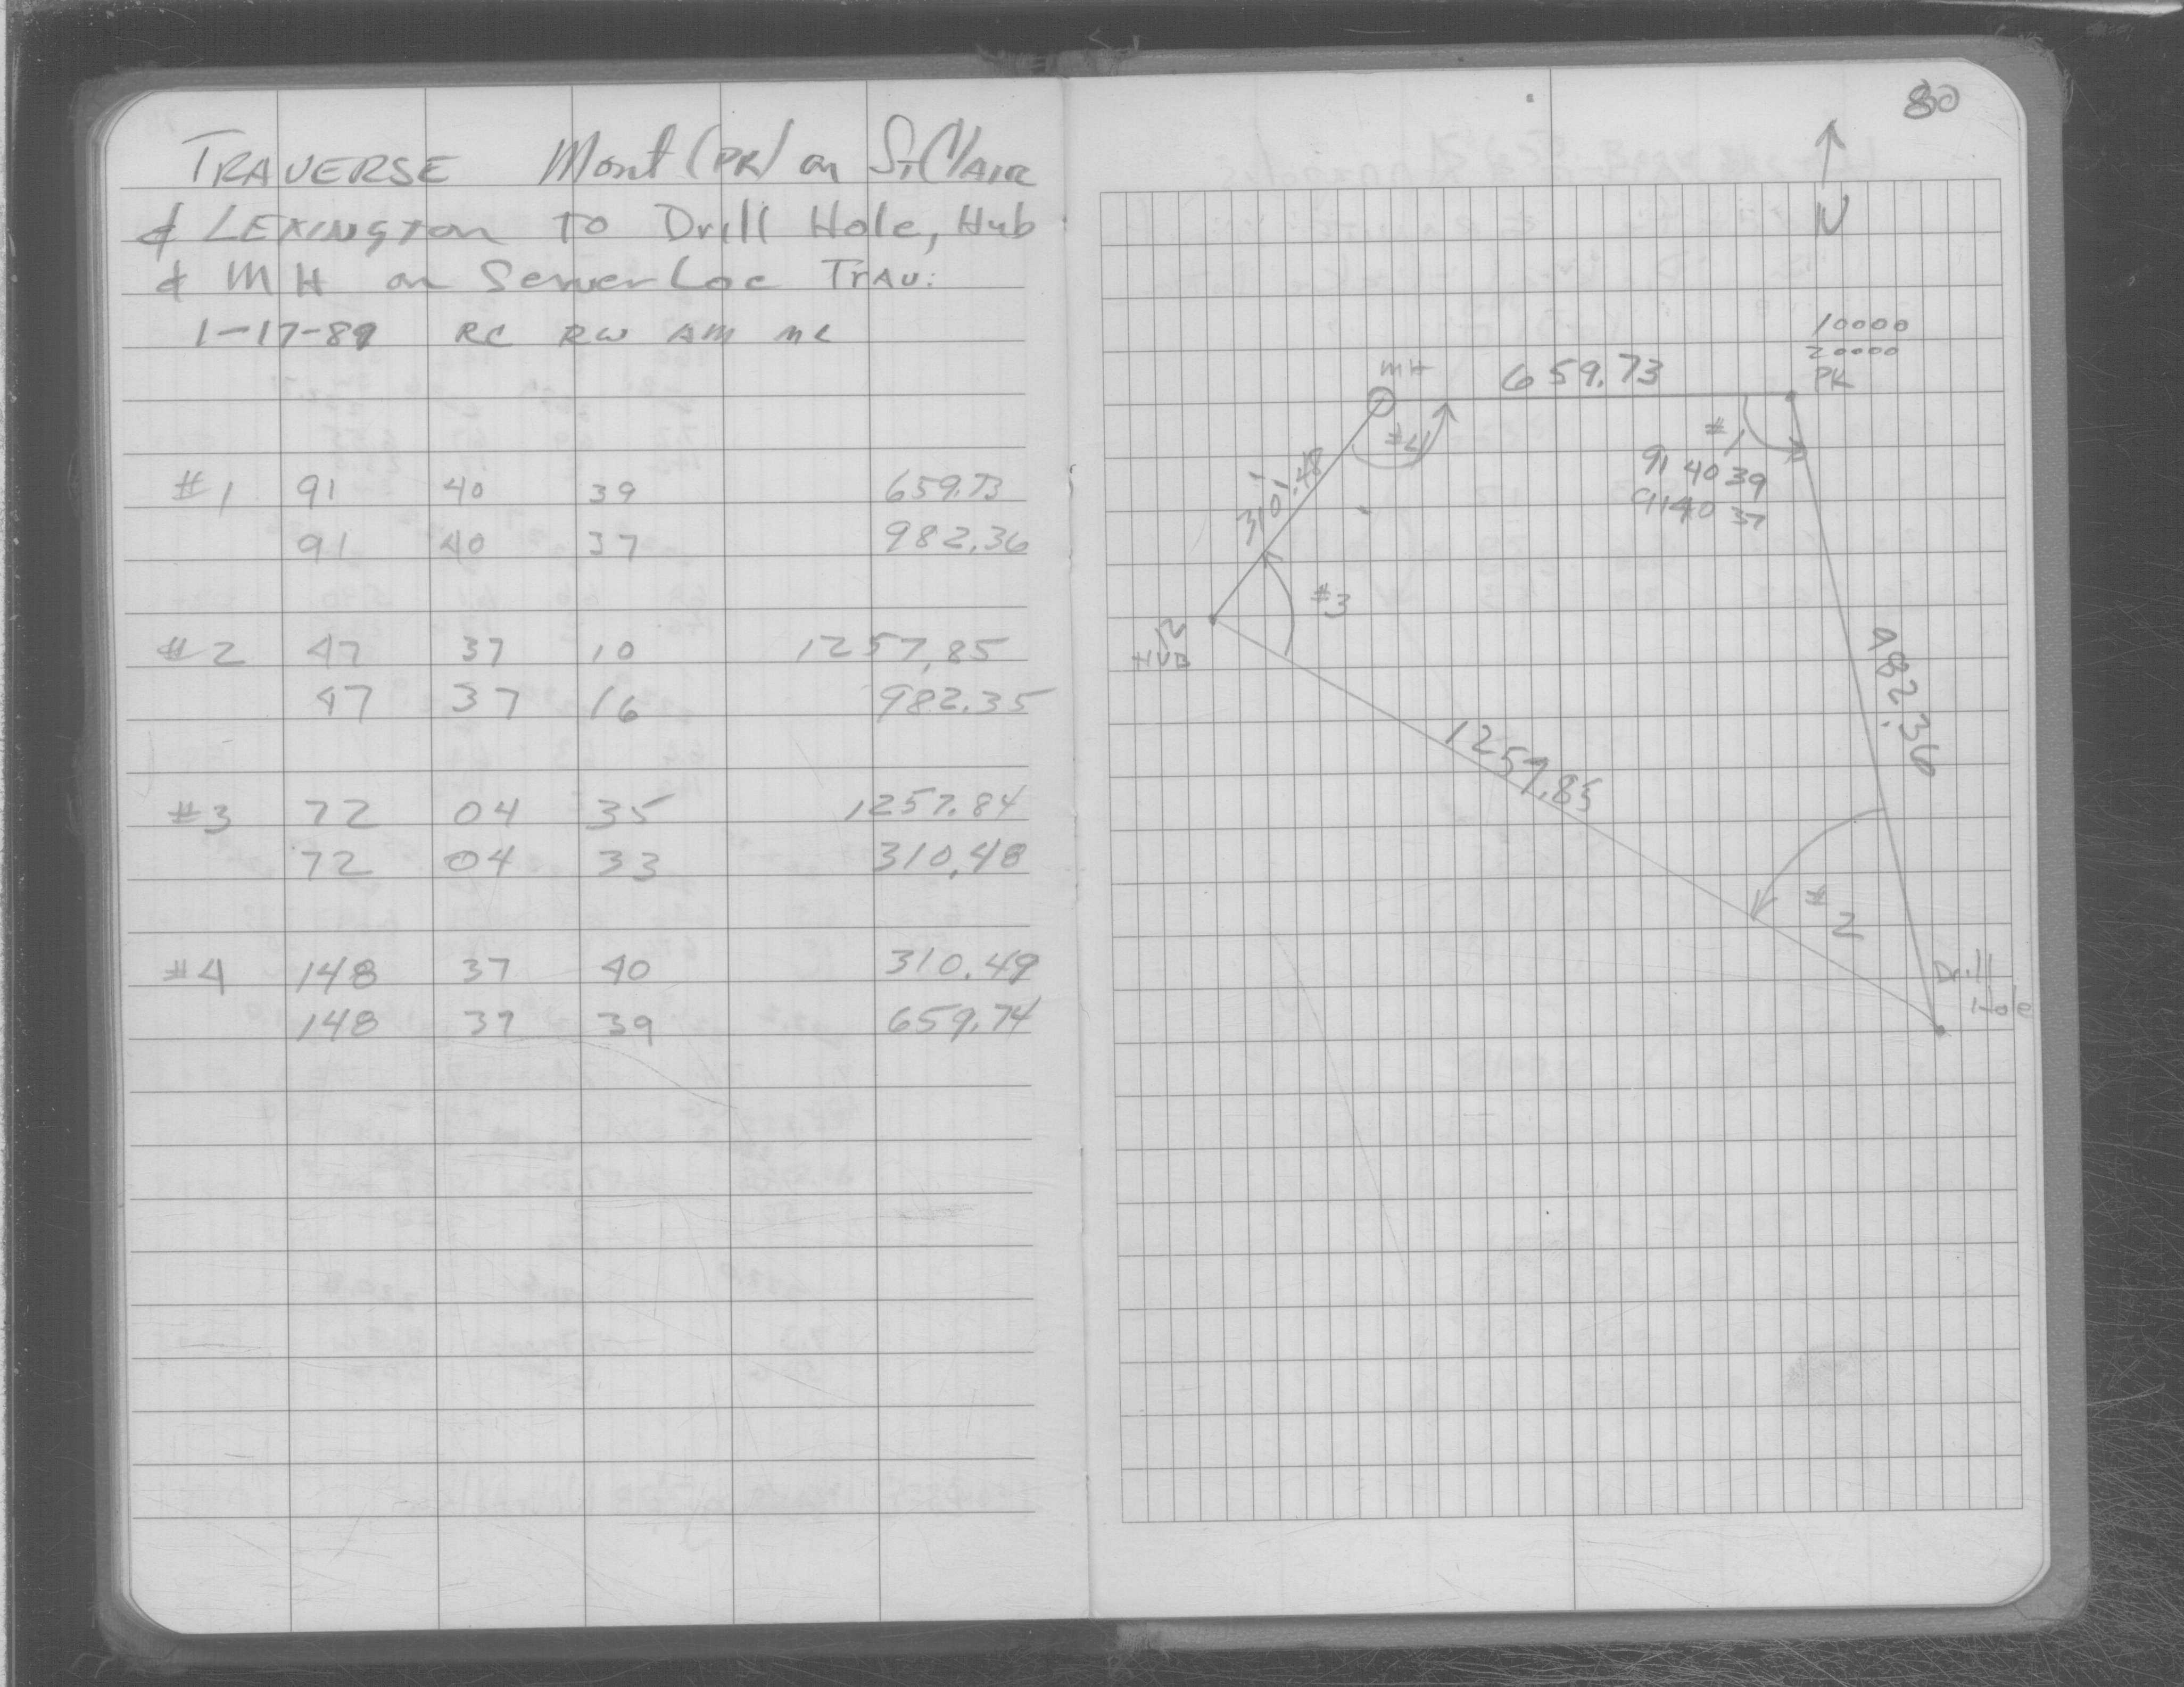 TRAVERSE Mont (PK) on St Clair
& LEXINGTON TO Drill Hole, Hub
& MH on Sewer Loc TrAv:
1-17-89 RC RW AM ML
#1 91 40 39 659.73
91 40 37 982.36
#2 47 37 10 1257.85
47 37 16 982.35
#3 72 04 35 1257.84
72 04 33 310.48
#4 148 37 40 310.49
148 37 39 659.74
80
N
10000
20000
PK
MH
659.73
#4
#1
91 40 39
91 40 37
310.48
#3
HUB
982.36
1257.85
#2
Drill
Hole